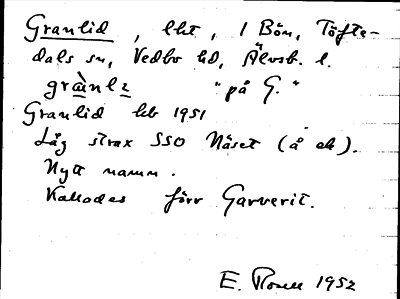 Granlid, lht, 1 Bön, Töfte-
dals sn, Vedbo hd, Älvsb. l.
grànlɩ "på G."
Granlid hb 1951
Låg strax SSO Näset (å ek).
Nytt namn.
Kallades förr Garverit.
E. Rosell 1952